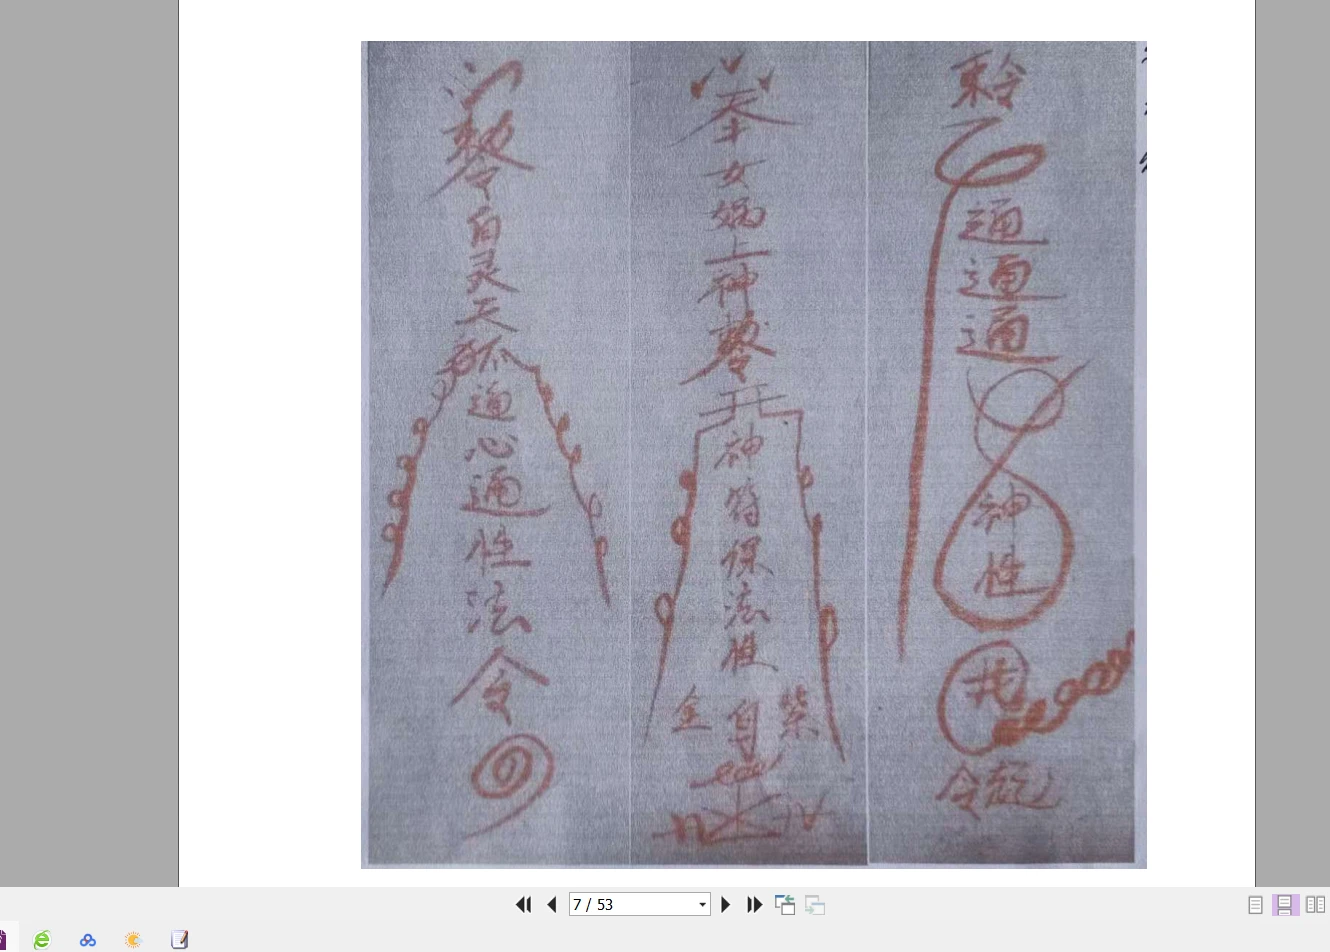 敕令自灵天狐通心通性法令
奉女娲上神敕令开神符保法性身
金
紫
敕令
通通通
神性
令起
7 / 53